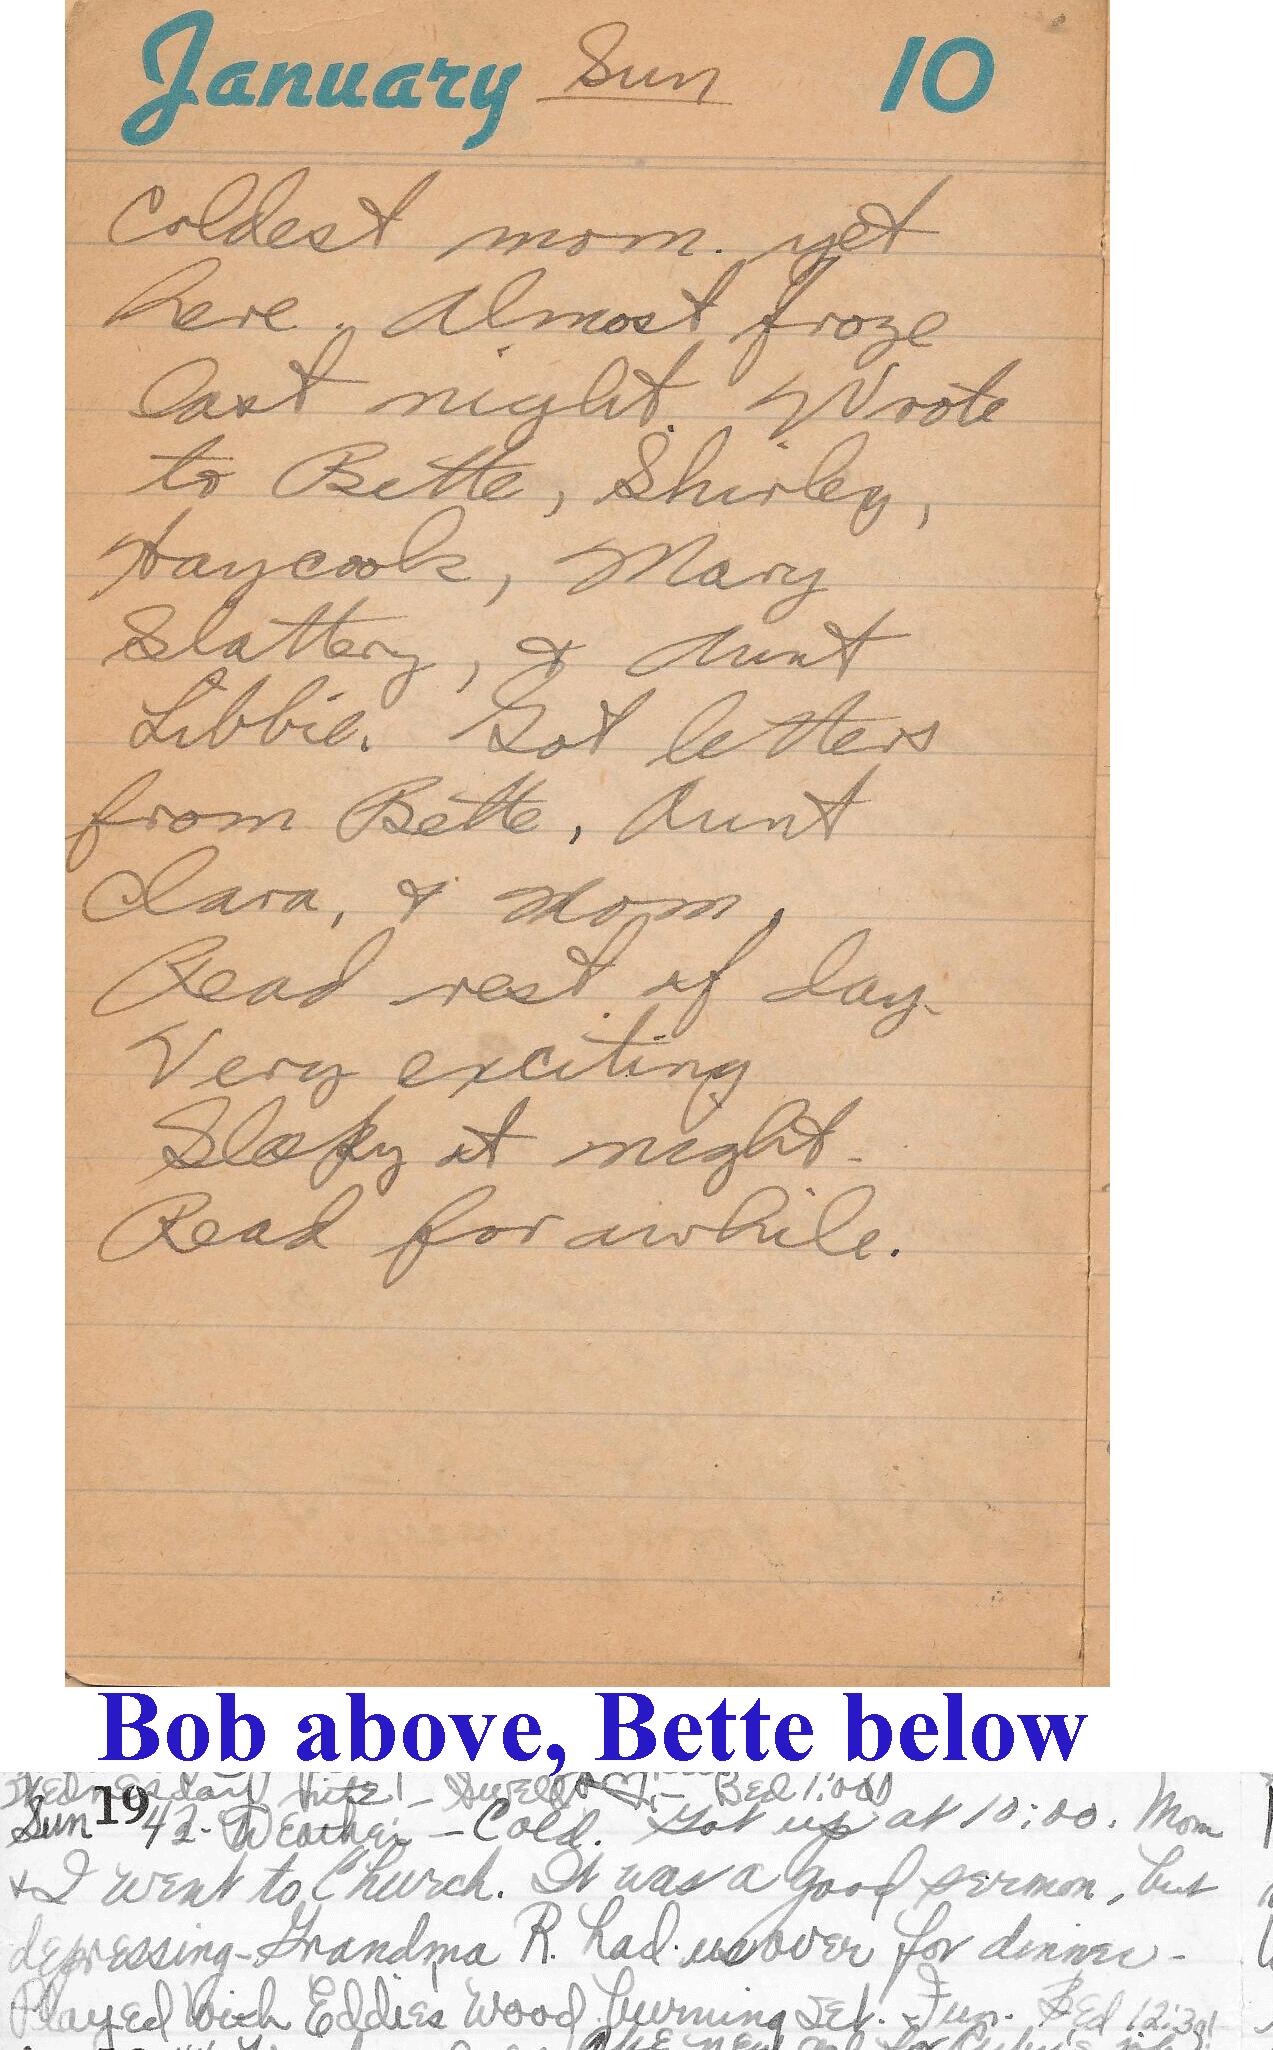 January Sun 10
Coldest morn. yet
here. Almost froze
last night. Wrote
to Bette, Shirley,
Haycook, Mary
Slattery, & Aunt
Libbie. Got letters
from Bette, Aunt
Clara, & Mom.
Read rest of day.
Very exciting
Sleepy at night.
Read for awhile.
Bob above, Bette below
Wednesday nite! - Bed 1:00
Sun 1942 - Weather - Cold. Got up at 10:00. Mom
& I went to Church. It was a good sermon, but
depressing - Grandma R. had us over for dinner -
Played with Eddies wood burning set. Fun. Bed 12:30!